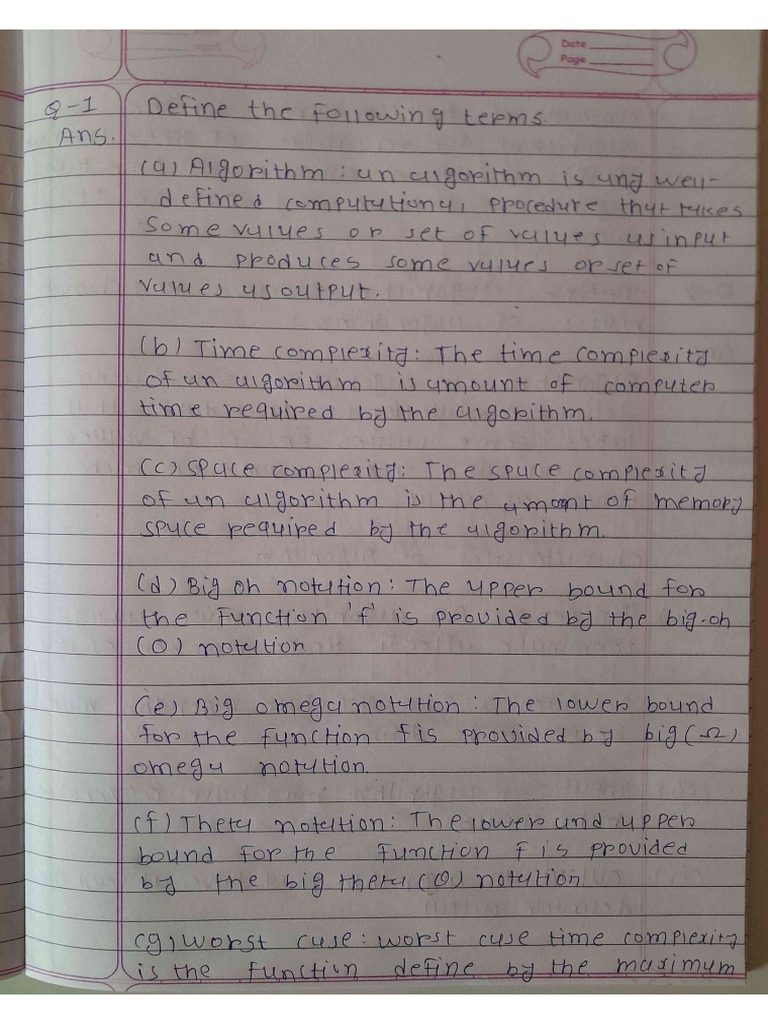 Date
Page
Q-1 Define the following terms.
Ans.
(a) Algorithm : an algorithm is any well-
defined computational procedure that takes
some values or set of values as input
and produces some values or set of
values as output.
(b) Time complexity : The time complexity
of an algorithm is amount of computer
time required by the algorithm.
(c) space complexity : The space complexity
of an algorithm is the amount of memory
space required by the algorithm.
(d) Big oh notation : The upper bound for
the function 'f' is provided by the big-oh
(O) notation
(e) Big omega notation : The lower bound
for the function f is provided by big (Ω)
omega notation.
(f) Theta notation : The lower and upper
bound for the function f is provided
by the big theta (θ) notation
(g) worst case : worst case time complexity
is the function define by the maximum